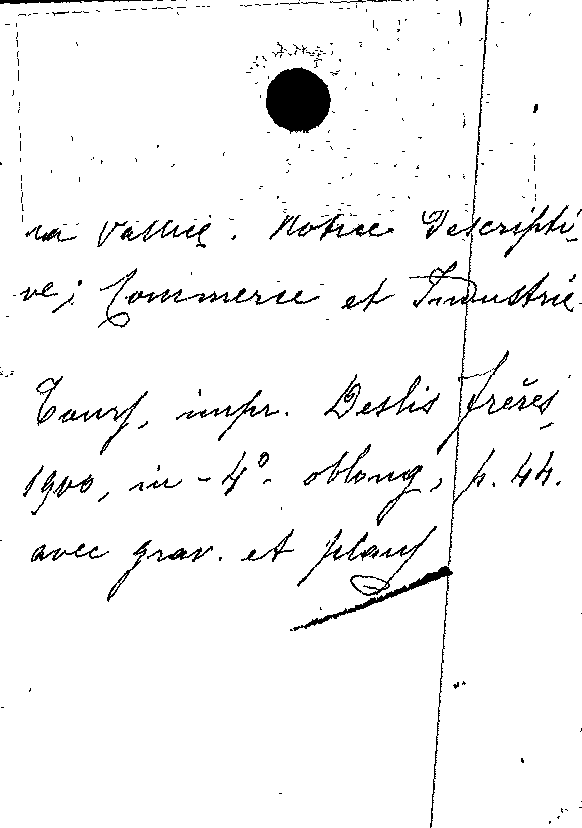 sa Vallée. Notice Descripti-
ve; Commerce et Industrie
Tours, impr. Deslis frères,
1900, in-4°. oblong, p. 44.
avec grav. et plans